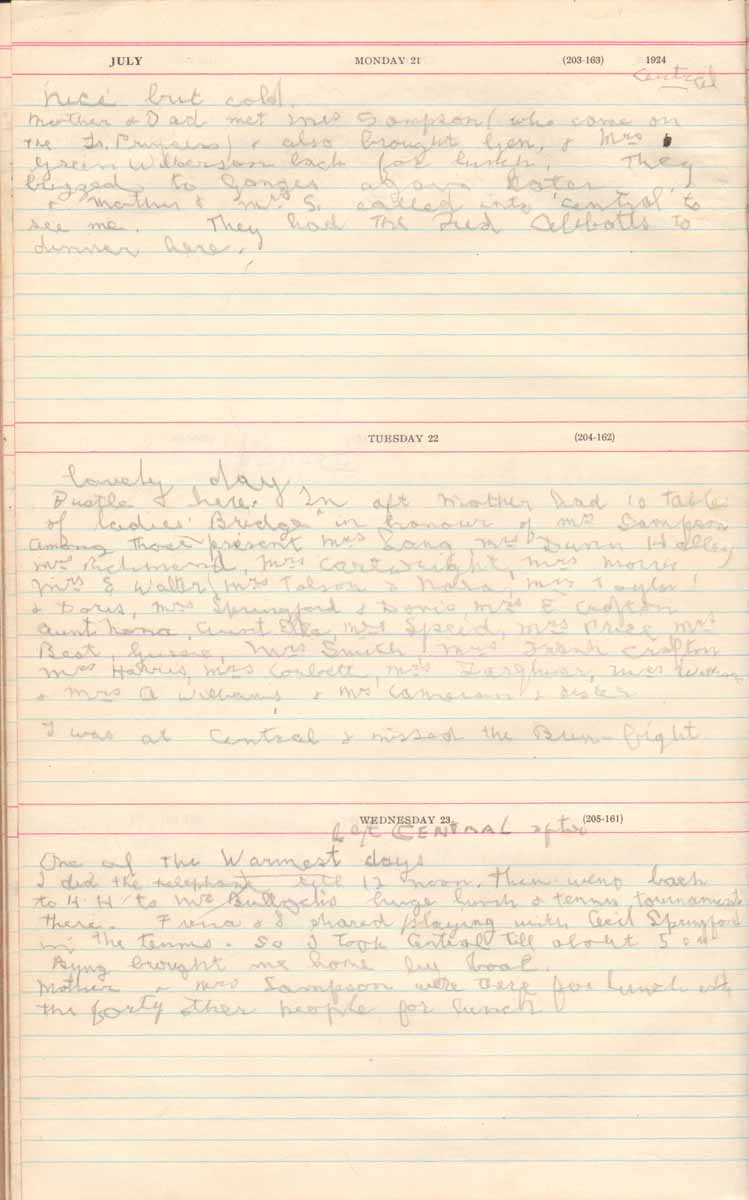 JULY MONDAY 21 (203-163) 1924
Central
Nice but cold.
Mother & Dad met Mrs Sampson (who came on
the Ss. Princess) & also brought Gen. & Mrs
Gwein Wilkerson back for lunch. They
to Ganges later
& Mother & Mrs S. called into 'Central' to
see me. They had the Fred Abbotts to
dinner here.
TUESDAY 22 (204-162)
Lovely day
Bustle & here. In aft Mother Dad 10 table
of ladies' Bridge in honour of Mrs Sampson
among those present Mrs Lang, Mrs Halley
Mrs Richmond, Mrs Cartwright, Mrs Morris
Mrs S Walter, Mrs Tolson & Nora, Mrs Taylor
& Doris, Mrs Springford & Doris Mrs E Crofton
Aunt Nona, Aunt Ella, Mrs Speed, Mrs Price Mrs
Best, Mrs Smith Mrs Frank Crofton
Mrs Harris, Mrs Corbett, Mrs Mrs
& Mrs A Williams & Mrs Cameron & sister
I was at Central & missed the Bun-fight
WEDNESDAY 23 (205-161)
Left CENTRAL after
One of the Warmest days
I did the telephone till 12 noon. Then went back
to H.H to Mrs Bullock's huge lunch & tennis tournament
there. Freda & I shared playing with Cecil Springford
in the tennis. So I took Central till about 5
Byng brought me home by boat.
Mother & Mrs Sampson were there for lunch with
the forty other people for lunch